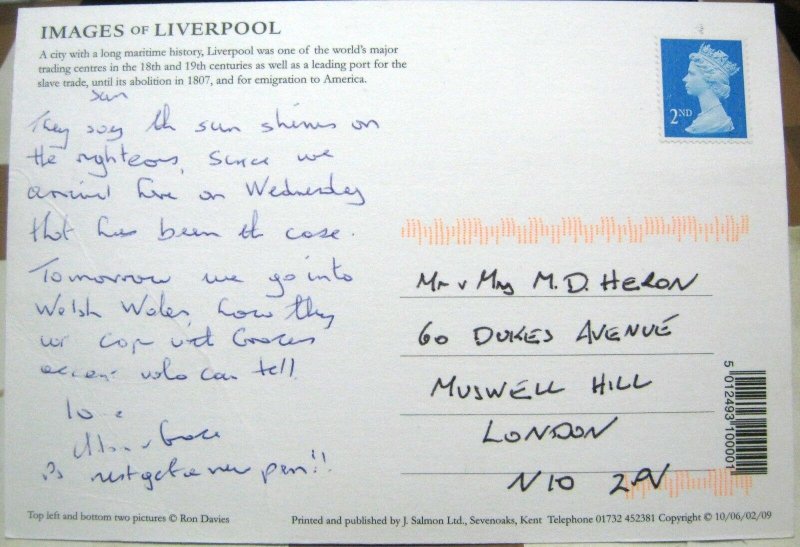 IMAGES OF LIVERPOOL
A city with a long maritime history, Liverpool was one of the world's major
trading centres in the 18th and 19th centuries as well as a leading port for the
slave trade, until its abolition in 1807, and for emigration to America.
Sun
They say th sun shines on
the righteous, since we
arrived here on Wednesday
that has been th case.
Tomorrow we go into
Welsh Wales, how they
wi cope with Graces
accent who can tell.
love
Grace
Ps must get a new pen!!
2ND
Mr & Mrs M.D. HERON
60 DUKES AVENUE
MUSWELL HILL
LONDON
N10 2PN
5 012493 100001
Top left and bottom two pictures © Ron Davies
Printed and published by J. Salmon Ltd., Sevenoaks, Kent Telephone 01732 452381 Copyright © 10/06/02/09